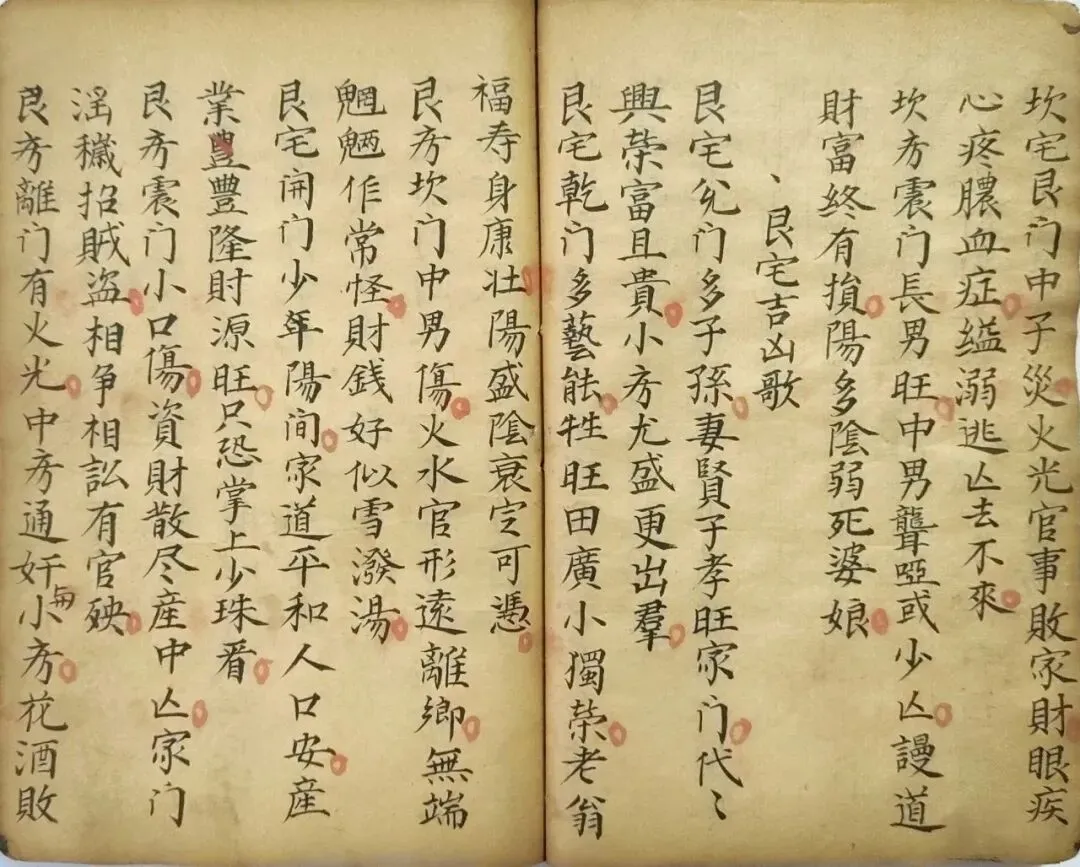 坎宅艮门中子災火光官事敗家財眼疾
心疼膿血症缢溺逃亾去不來
坎方震门長男旺中男聾啞或少亾謾道
財富終有損陽多陰弱死婆娘
、艮宅吉凶歌
艮宅兌门多子孫妻賢子孝旺家门代〻
興荣富且貴小方尤盛更出羣
艮宅乾门多藝能牲旺田廣小獨荣老翁
福寿身康壮陽盛陰衰定可憑
艮方坎门中男傷火水官形遠離鄉無端
魍魎作常怪財銭好似雪潑湯
艮宅开门少年陽间家道平和人口安産
業豊豐隆財源旺只恐掌上少珠看
艮方震门小口傷資財散尽産中亾家门
滛穢招贼盗相争相訟有官殃
艮方離门有火光中方通奸与小方花酒敗